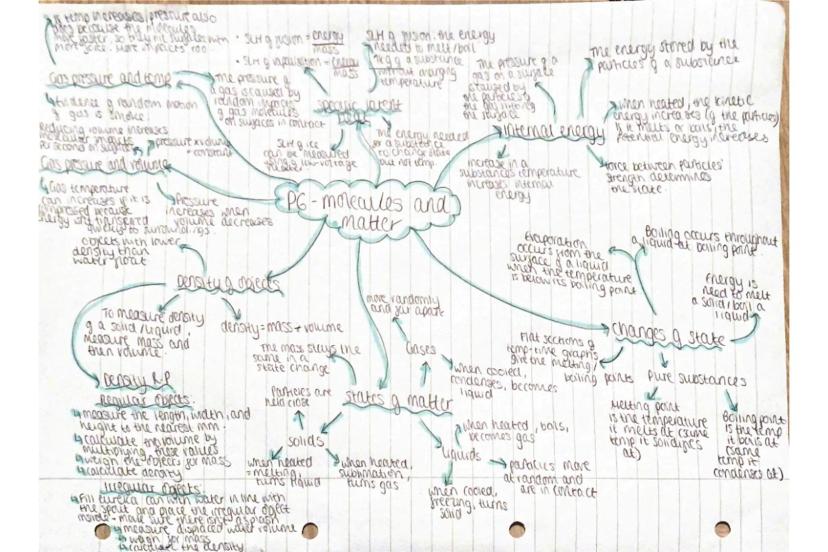 if temp increases, pressure also
does because the molecules
move faster, so they hit surfaces with
more force. More impacts too.
Gas pressure and temp
Evidence of random motion
of gas is smoke.
The pressure of
a gas is caused by
random impacts
of gas molecules
on surfaces in contact
reducing volume increases
molecular impacts
per second on surfaces
pressure x volume
= constant
Gas pressure and volume
Gas temperature
can increase if it is
compressed because
energy isn't transferred
quickly to surroundings.
Pressure
increases when
volume decreases
SLH of fusion = energy
mass
SLH of vaporisation = energy
mass
SLH of fusion: the energy
needed to melt/boil
1kg of a substance
without changing
temperature
specific latent
heat
SLH of ice
can be measured
using a low-voltage
heater
The energy needed
for a substance
to change state
but not temp.
The pressure of a
gas on a surface
is caused by
the particles of
the gas hitting
the surface
The energy stored by the
particles of a substance
internal energy
when heated, the kinetic
energy increases (of the particles)
If it melts or boils, the
potential energy increases
increase in a
substances temperature
increases internal
energy
Force between particles'
strength determines
the state.
P6 - molecules and
matter
objects with lower
density than
water float
Density of objects
To measure density
of a solid/liquid,
measure mass and
then volume.
density = mass ÷ volume
Density R.P
Regular objects:
measure the length, width, and
height to the nearest mm.
calculate the volume by
multiplying these values
weigh the objects for mass
calculate density
Irregular objects:
Fill eureka can with water in line with
the spout and place the irregular object
inside - make sure there isnt a splash
measure displaced water volume
weigh for mass
calculate the density.
move randomly
and far apart
Gases
when cooled,
condenses, becomes
liquid
the mass stays the
same in a
state change
states of matter
Particles are
held close
solids
when heated
= melting,
turns liquid
when heated,
sublimation,
turns gas
when heated, boils,
becomes gas
liquids
particles move
at random and
are in contact
when cooled,
freezing, turns
solid
Evaporation
occurs from the
surface of a liquid
when the temperature
is below its boiling point
Boiling occurs throughout
a liquid at boiling point.
Energy is
need to melt
a solid/boil a
liquid
changes of state
Flat sections of
temp-time graphs
give the melting/
boiling points
Pure substances
Melting point
is the temperature
it melts at (same
temp it solidifies
at)
Boiling point
is the temp
it boils at
(same
temp it
condenses at)